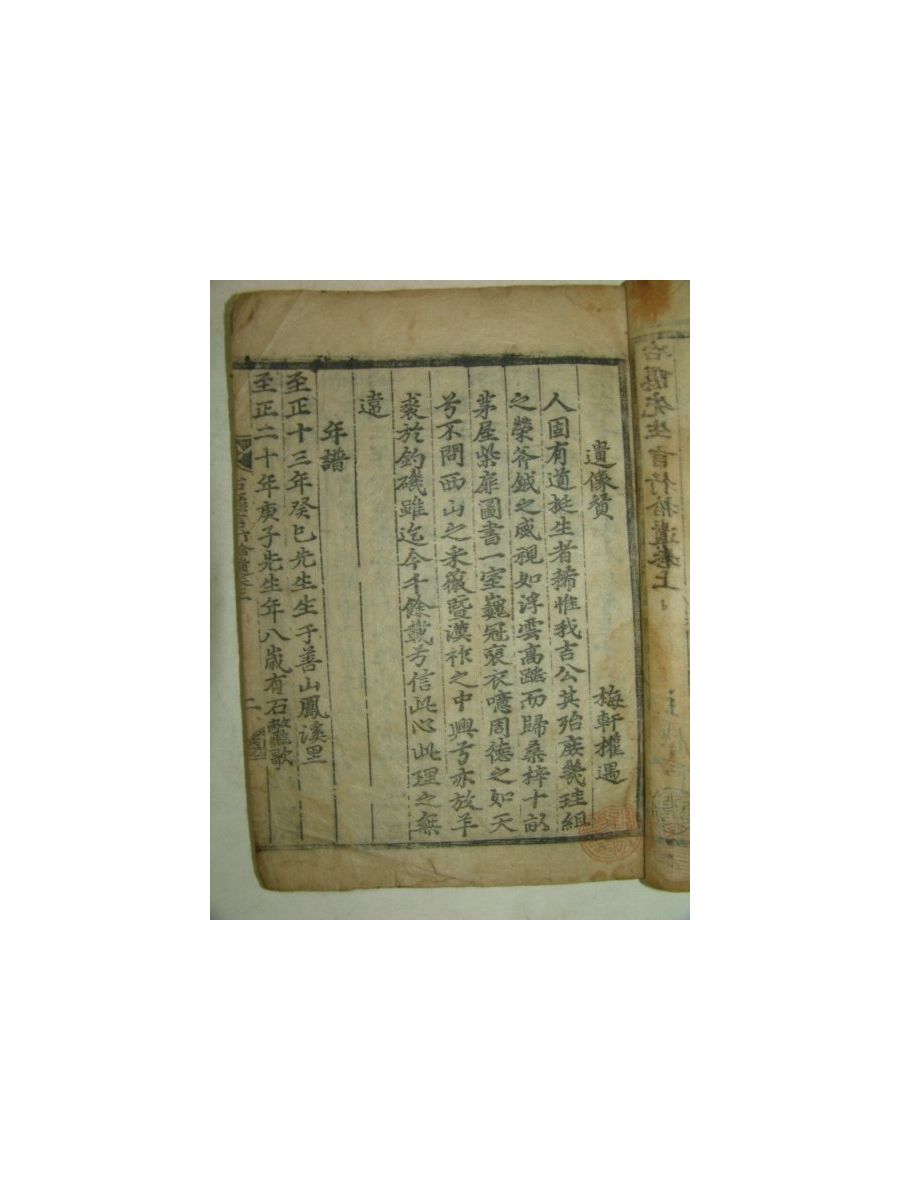 冶隱先生言行拾遺卷上
遺像贊
梅軒權遇
人固有道挺生者稀惟我吉公其殆庶幾珪組
之榮斧鉞之威視如浮雲高蹈而歸桑梓十畝
茅屋柴扉圖書一室巍冠裒衣噫周德之如天
兮不問西山之采薇曁漢祚之中興兮亦放羊
裘於釣磯雖迄今千餘載兮信此心此理之無
違
年譜
至正十三年癸巳先生生于善山鳳溪里
至正二十年庚子先生年八歲有石鼈歌